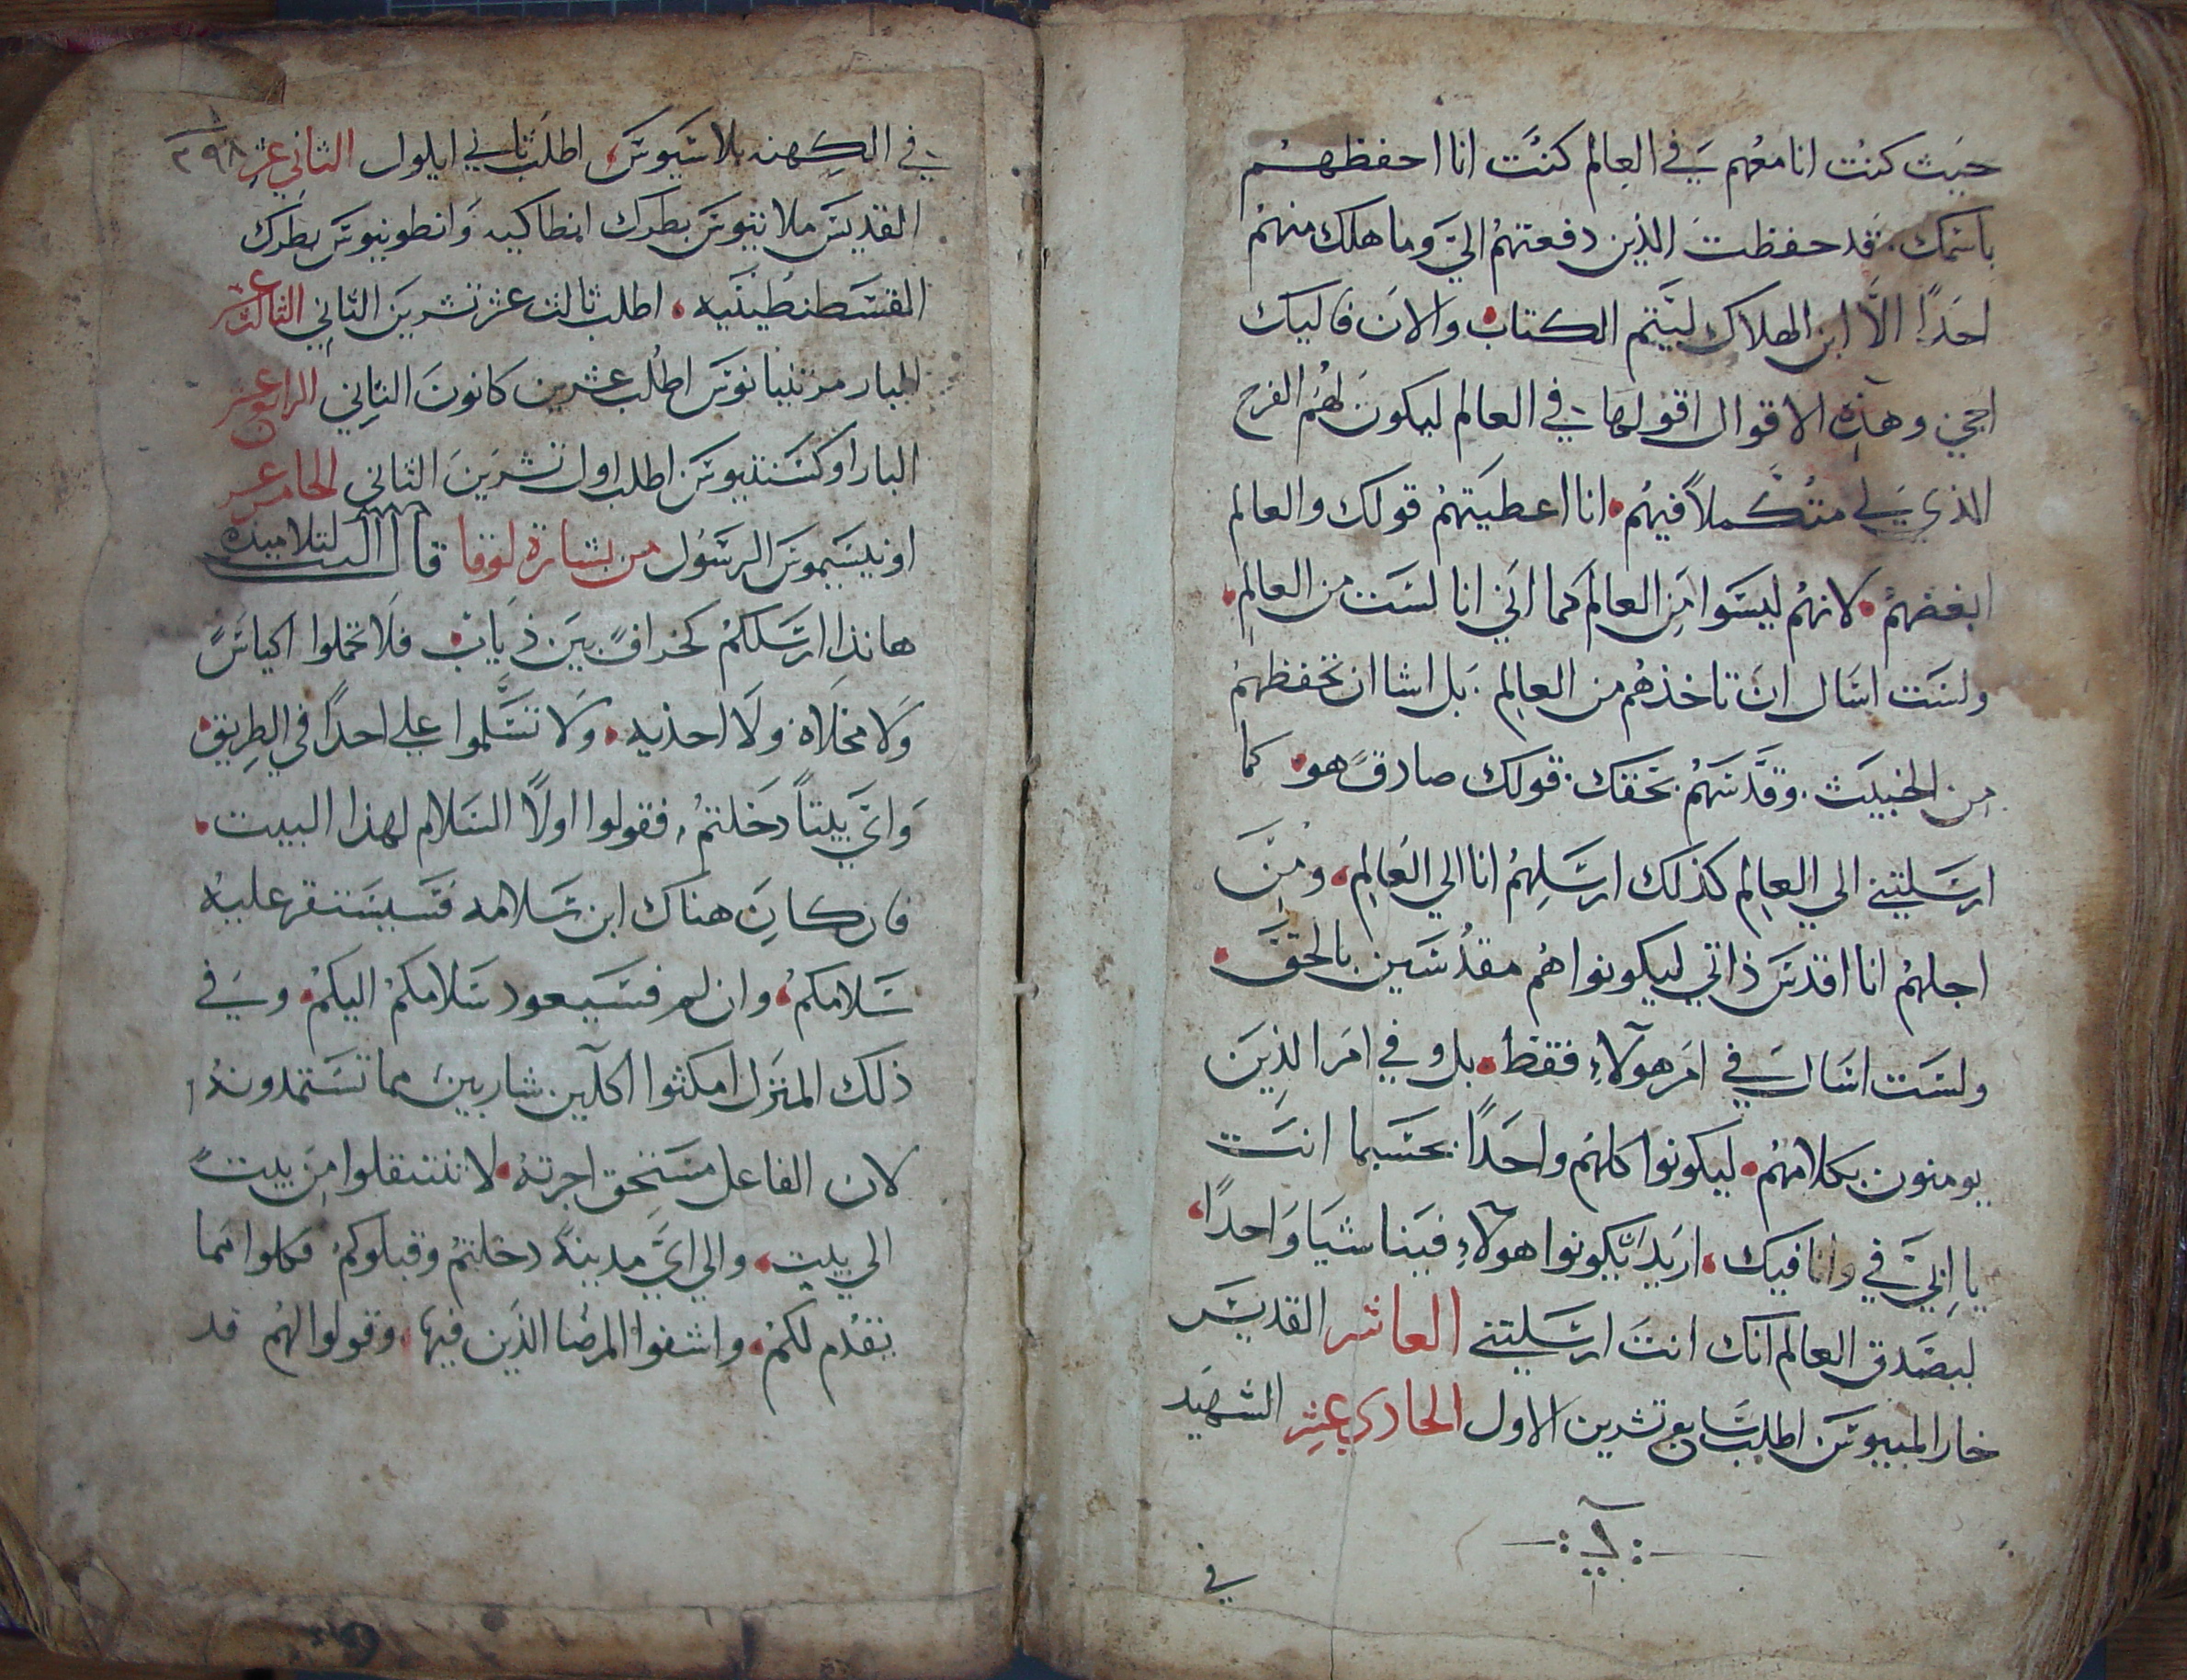 حيث كنت انا معهم في العالم كنت انا احفظهم
باسمك. قد حفظت الذين دفعتهم الي وما هلك منهم
احدًا الّا ابن الهلاك ليتم الكتاب والان فاليك
اجي وهذه الاقوال اقولها في العالم ليكون لهم الفرح
الذي لي متكملاً فيهم. انا اعطيتهم قولك والعالم
ابغضهم. لانهم ليسوا من العالم كما انني انا لست من العالم.
ولست اسال ان تاخذهم من العالم. بل اشا ان تحفظهم
من الخبيث. وقدّسهم بحقك. قولك صادق هو. كما
ارسلتني الي العالم كذلك ارسلهم انا الي العالم. ومن
اجلهم انا اقدس ذاتي ليكونوا هم مقدسين بالحق.
ولست اسال في امر هولآء فقط. بل وفي امر الذين
يومنون بكلامهم. ليكونوا كلهم واحدًا بحسبما انت
يا ابي في وانا فيك. اريد يكونوا هولآء فينا شيا واحدًا.
ليصدق العالم انك انت ارسلتني العاشر القديس
خارالمبيوس اطلب سابع تشرين الاول الحادي عشر الشهيد
في
في الكهنه بلاسيوس اطلب ثاني ايلول الثاني عشر ٢٩٨
القديس ملاتيوس بطرك انطاكيه وانطونيوس بطرك
القسطنطينيه. اطلب ثالث عشر تشرين الثاني الثالث عشر
البار مرتنيانوس اطلب عشرين كانون الثاني الرابع عشر
البار اوكسنتيوس اطلب اول تشرين الثاني الخامس عشر
اونيسيموس الرسول من بشارة لوقا قال الرب لتلاميذه
هانذا ارسلكم كخراف بين ذياب فلا تحملوا اكياس
ولا مخلاة ولا احذيه. ولا تسلموا علي احدًا في الطريق
واي بيتاً دخلتم. فقولوا اولاً السلام لهذا البيت.
فان كان هناك ابن سلامه فسيستقر عليه
سلامكم. وان لم فسيعود سلامكم اليكم. وفي
ذلك المنزل امكثوا آكلين شاربين مما تستمدونه
لان الفاعل مستحق اجرته. لا تنتقلوا من بيت
الي بيت. والي اي مدينة دخلتم وقبلوكم فكلوا مما
يقدم لكم. واشفوا المرضا الذين فيها. وقولوا لهم قد